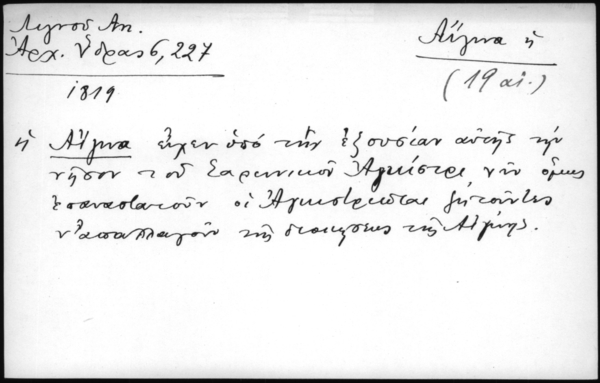 Λιγνοῦ Ἀν.
Ἀρχ. Ὕδρας 6, 227
1819
Αἴγινα ἡ
(19 αἰ.)
ἡ Αἴγινα εἶχεν ὑπό τήν ἐξουσίαν αὐτῆς τήν
νῆσον τοῦ Σαρωνικοῦ Ἀγκίστρι νῦν ὅμως
ἐπαναστατοῦν οἱ Ἀγκιστριῶται ζητοῦντες
ν' ἀπαλλαγοῦν τῆς διοικήσεως τῆς Αἰγίνης.